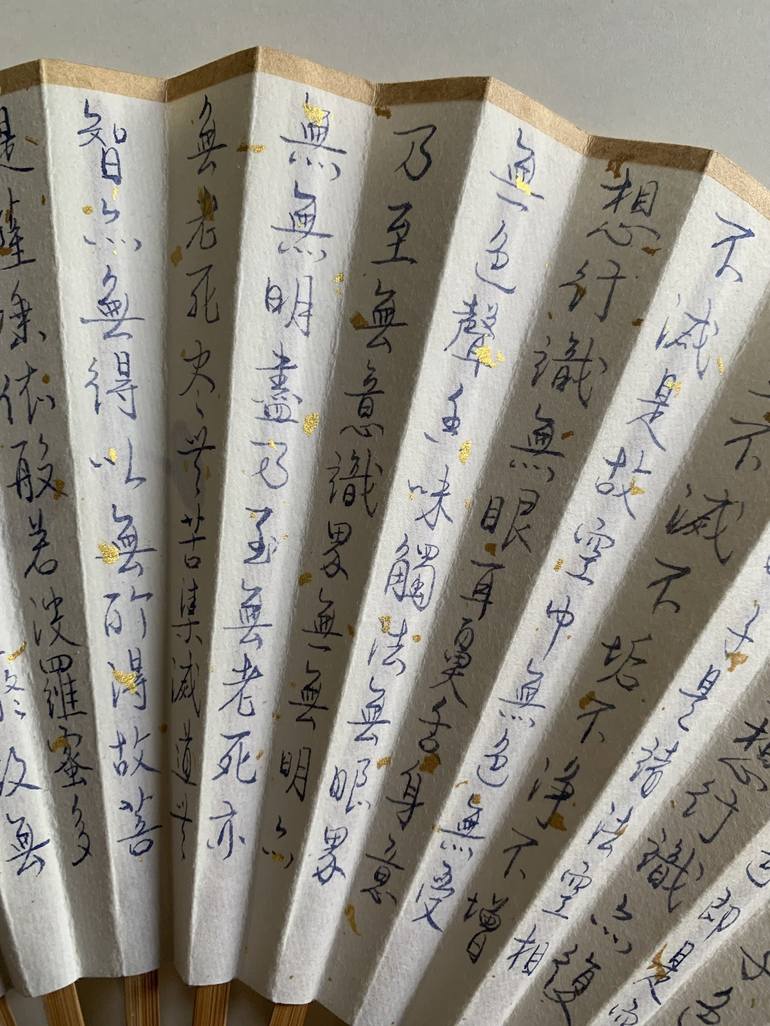 即是空
想行識亦復
子是諸法空相
不滅不垢不淨不增
不減是故空中無色無受
想行識無眼耳鼻舌身意
無色聲香味觸法無眼界
乃至無意識界無無明亦
無無明盡乃至無老死亦
無老死尽無苦集滅道無
智亦無得以無所得故菩
提薩埵依般若波羅蜜多
故無